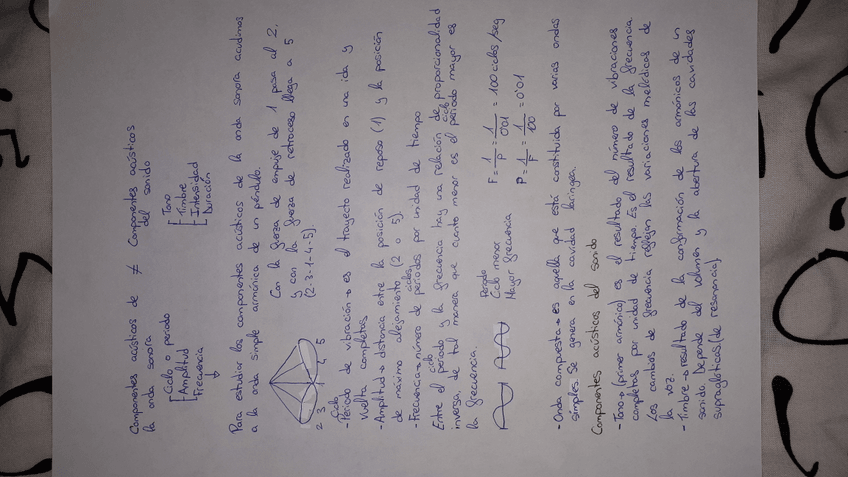 Componentes acústicos de ≠ Componentes acústicos
la onda sonora del sonido
Ciclo o periodo
Amplitud
Frecuencia
Tono
Timbre
Intensidad
Duración
Para estudiar los componentes acústicos de la onda sonora acudimos
a la onda simple armónica de un péndulo.
Con la fuerza de empuje de 1 pasa al 2,
y con la fuerza de retroceso llega a 5
(2-3-1-4-5).
2 3 1 4 5
Ciclo
- Periodo de vibración → es el trayecto realizado en una ida y
vuelta completas
- Amplitud → distancia entre la posición de reposo (1) y la posición
de máximo alejamiento (2 o 5).
ciclos
- Frecuencia → número de periodos por unidad de tiempo
ciclo
Entre el periodo y la frecuencia hay una relación de proporcionalidad
ciclo
inversa, de tal manera que cuanto menor es el periodo mayor es
la frecuencia.
Periodo
Ciclo menor
Mayor frecuencia
F = 1/P = 1/0'01 = 100 ciclos/seg
P = 1/F = 1/100 = 0'01
- Onda compuesta → es aquella que está constituida por varias ondas
simples. Se genera en la cavidad laríngea.
Componentes acústicos del sonido
- Tono → (primer armónico) es el resultado del número de vibraciones
completas por unidad de tiempo. Es el resultado de la frecuencia.
Los cambios de frecuencia reflejan las variaciones melódicas de
la voz.
- Timbre → resultado de la conformación de los armónicos de un
sonido. Depende del volumen y la abertura de las cavidades
supraglóticas (de resonancia)